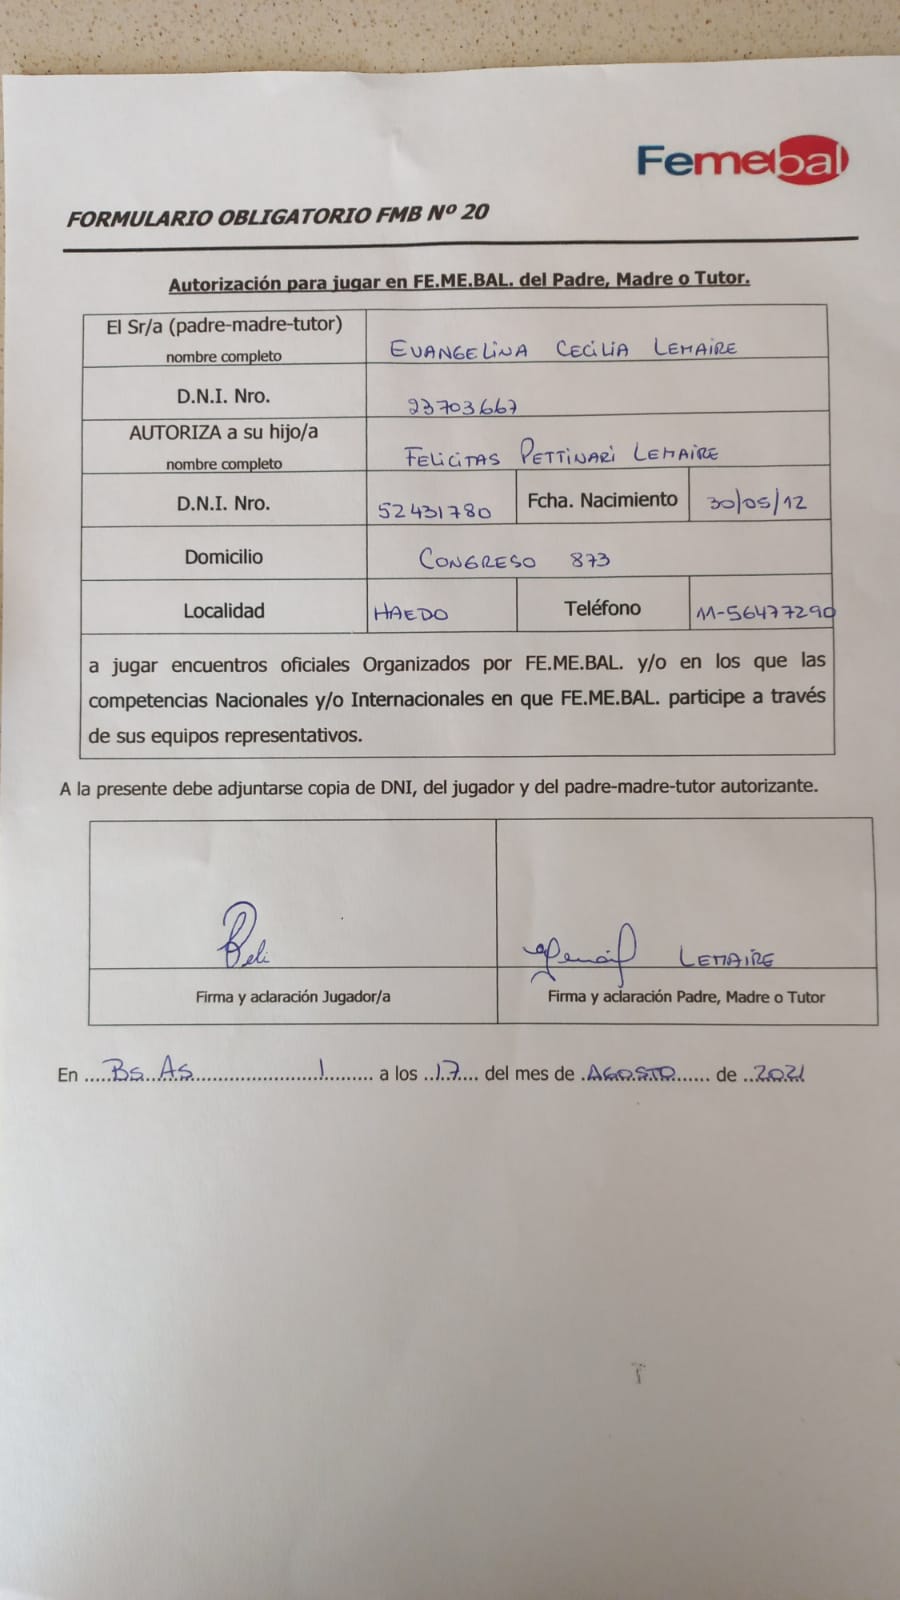 Femebal
FORMULARIO OBLIGATORIO FMB Nº 20
Autorización para jugar en FE.ME.BAL. del Padre, Madre o Tutor.
El Sr/a (padre-madre-tutor)
nombre completo
EVANGELINA CECILIA LEMAIRE
D.N.I. Nro.
23703667
AUTORIZA a su hijo/a
nombre completo
FELICITAS PETTINARI LEMAIRE
D.N.I. Nro.
52431780
Fcha. Nacimiento
30/05/12
Domicilio
CONGRESO 873
Localidad
HAEDO
Teléfono
11-56477290
a jugar encuentros oficiales Organizados por FE.ME.BAL. y/o en los que las
competencias Nacionales y/o Internacionales en que FE.ME.BAL. participe a través
de sus equipos representativos.
A la presente debe adjuntarse copia de DNI, del jugador y del padre-madre-tutor autorizante.
LEMAIRE
Firma y aclaración Jugador/a
Firma y aclaración Padre, Madre o Tutor
En .....Bs..As.......................1......... a los ..17.... del mes de .AGOSTO...... de ..2021